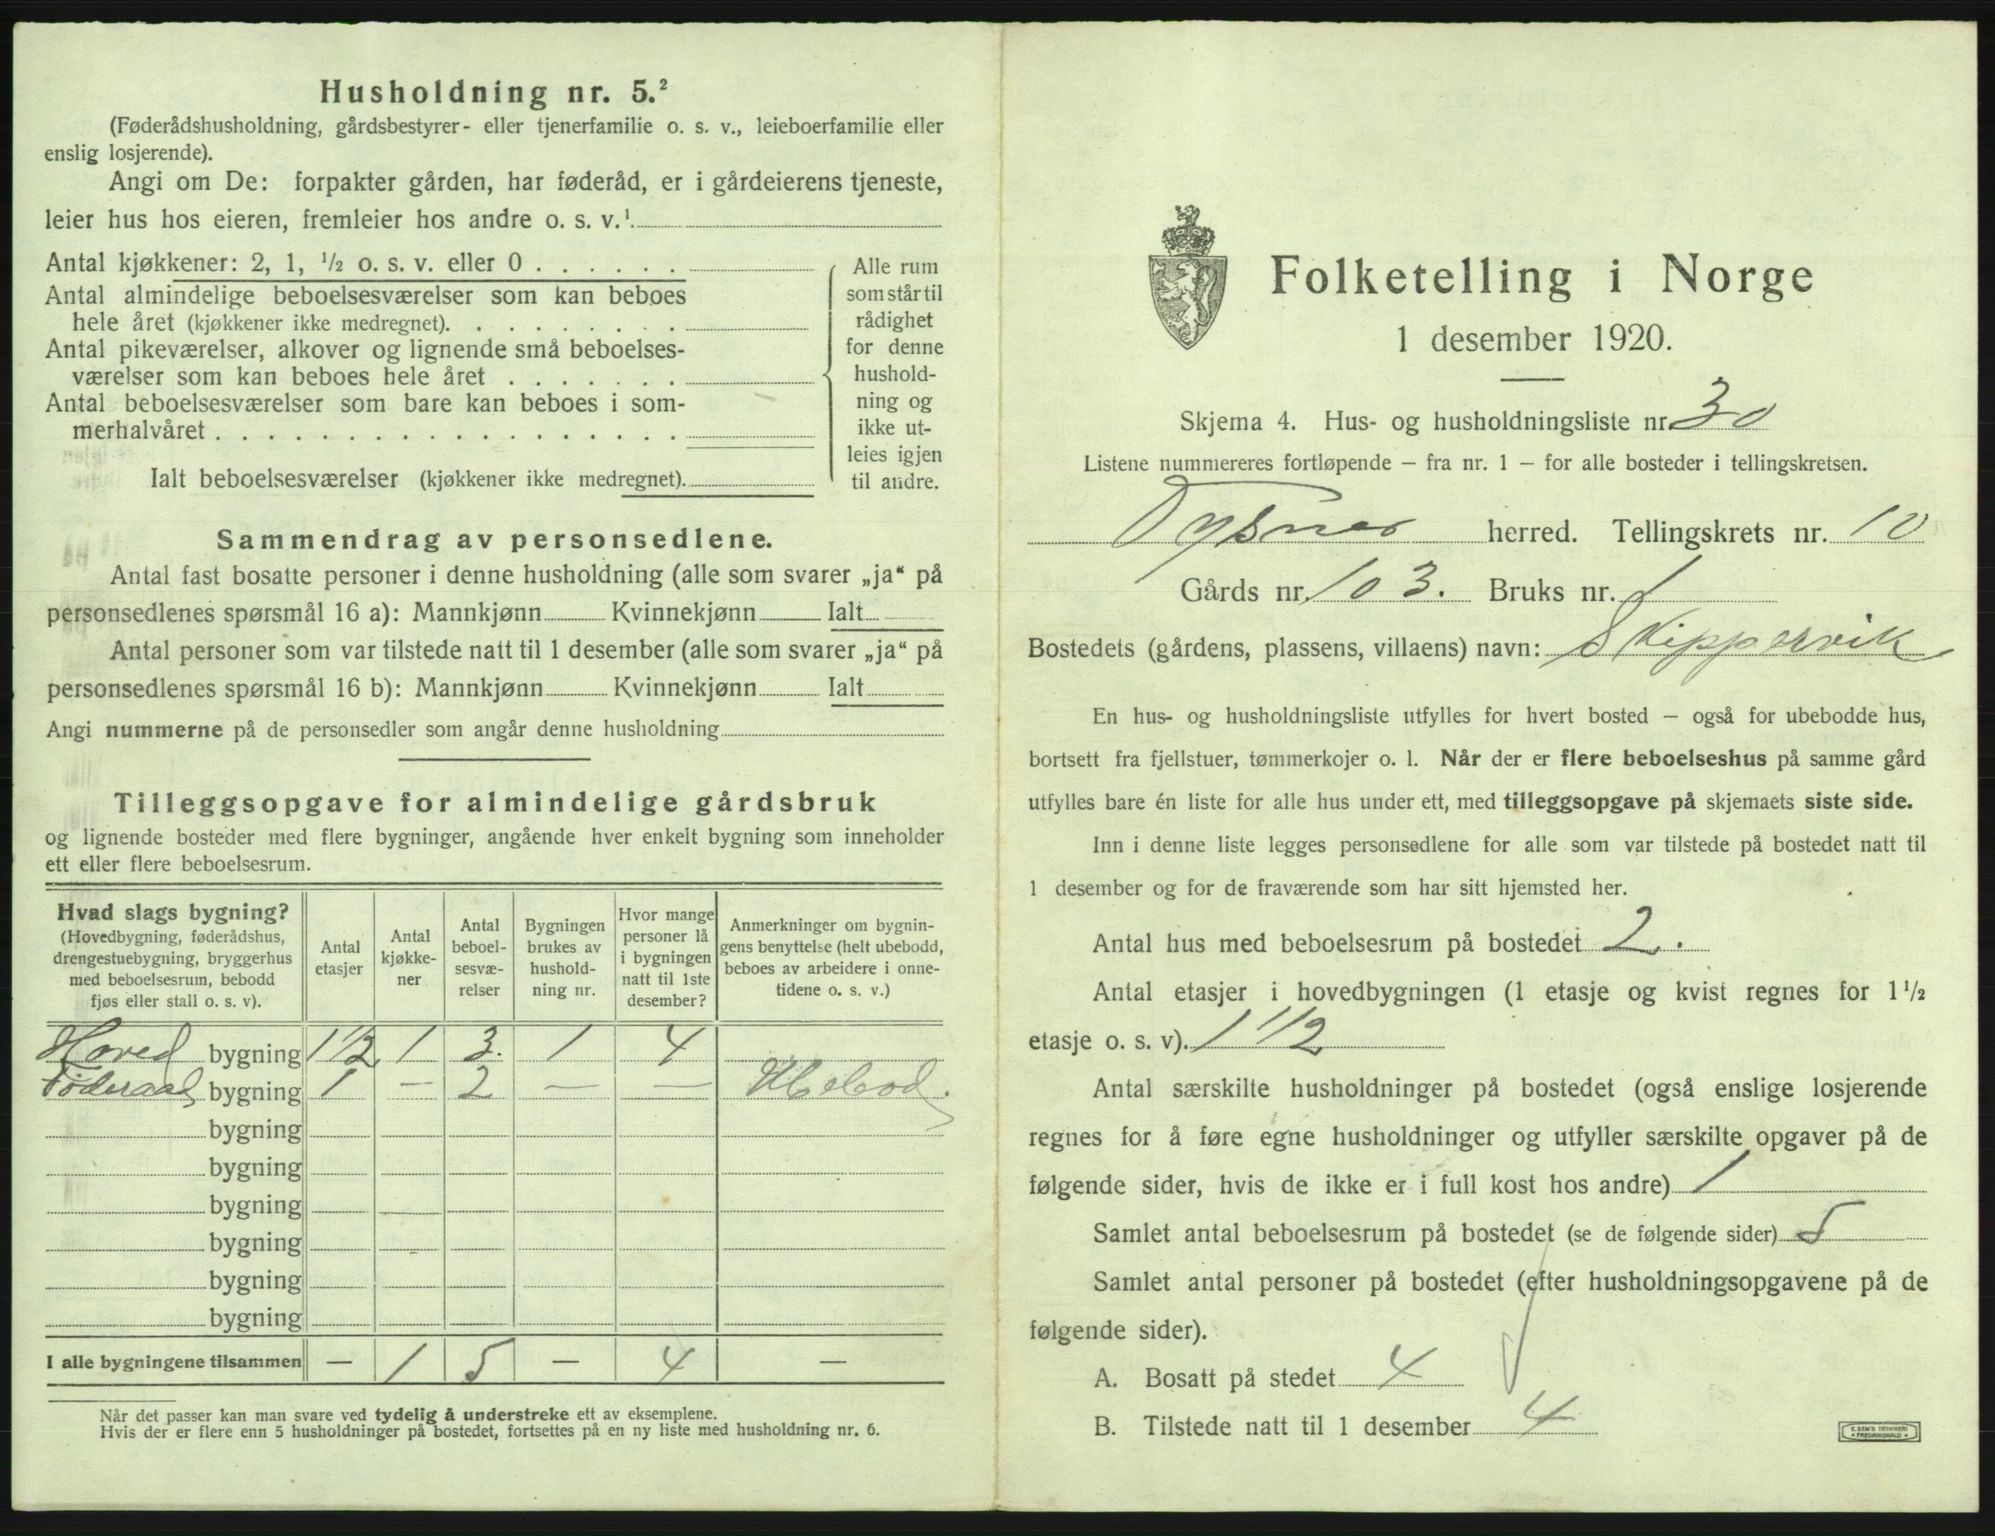 Husholdning nr. 5.²
(Føderådshusholdning, gårdsbestyrer- eller tjenerfamilie o. s. v., leieboerfamilie eller
enslig losjerende).
Angi om De: forpakter gården, har føderåd, er i gårdeierens tjeneste,
leier hus hos eieren, fremleier hos andre o. s. v.¹.
Antal kjøkkener: 2, 1, ½ o. s. v. eller 0 . . . . . .
Antal almindelige beboelsesværelser som kan beboes
hele året (kjøkkener ikke medregnet). . . . . . . . .
Antal pikeværelser, alkover og lignende små beboelses-
værelser som kan beboes hele året . . . . . . .
Antal beboelsesværelser som bare kan beboes i som-
merhalvåret . . . . . . . . . . . . . . . . . .
Ialt beboelsesværelser (kjøkkener ikke medregnet).
Alle rum
som står til
rådighet
for denne
hushold-
ning og
ikke ut-
leies igjen
til andre.
Sammendrag av personsedlene.
Antal fast bosatte personer i denne husholdning (alle som svarer „ja“ på
personsedlenes spørsmål 16 a): Mannkjønn Kvinnekjønn Ialt
Antal personer som var tilstede natt til 1 desember (alle som svarer „ja“ på
personsedlenes spørsmål 16 b): Mannkjønn Kvinnekjønn Ialt
Angi nummerne på de personsedler som angår denne husholdning
Tilleggsopgave for almindelige gårdsbruk
og lignende bosteder med flere bygninger, angående hver enkelt bygning som inneholder
ett eller flere beboelsesrum.
Hvad slags bygning?
(Hovedbygning, føderådshus,
drengestuebygning, bryggerhus
med beboelsesrum, bebodd
fjøs eller stall o. s. v).
Antal
etasjer
Antal
kjøkke-
ner
Antal
beboel-
sesvæ-
relser
Bygningen
brukes av
hushold-
ning nr.
Hvor mange
personer lå
i bygningen
natt til 1ste
desember?
Anmerkninger om bygnin-
gens benyttelse (helt ubebodd,
beboes av arbeidere i onne-
tidene o. s. v.)
Hoved bygning 1 1/2 1 3. 1 4
Føderaad bygning 1 — 2 — — Ubebod.
bygning
bygning
bygning
bygning
bygning
bygning
I alle bygningene tilsammen — 1 5 — 4 —
Når det passer kan man svare ved tydelig å understreke ett av eksemplene.
Hvis der er flere enn 5 husholdninger på bostedet, fortsettes på en ny liste med husholdning nr. 6.
Folketelling i Norge
1 desember 1920.
Skjema 4. Hus- og husholdningsliste nr. 30
Listene nummereres fortløpende – fra nr. 1 – for alle bosteder i tellingskretsen.
Tysnes herred. Tellingskrets nr. 10
Gårds nr. 103. Bruks nr. 1
Bostedets (gårdens, plassens, villaens) navn: Skippervik
En hus- og husholdningsliste utfylles for hvert bosted – også for ubebodde hus,
bortsett fra fjellstuer, tømmerkojer o. l. Når der er flere beboelseshus på samme gård
utfylles bare én liste for alle hus under ett, med tilleggsopgave på skjemaets siste side.
Inn i denne liste legges personsedlene for alle som var tilstede på bostedet natt til
1 desember og for de fraværende som har sitt hjemsted her.
Antal hus med beboelsesrum på bostedet 2.
Antal etasjer i hovedbygningen (1 etasje og kvist regnes for 1½
etasje o. s. v). 1 1/2
Antal særskilte husholdninger på bostedet (også enslige losjerende
regnes for å føre egne husholdninger og utfyller særskilte opgaver på de
følgende sider, hvis de ikke er i full kost hos andre) 1
Samlet antal beboelsesrum på bostedet (se de følgende sider) 5
Samlet antal personer på bostedet (efter husholdningsopgavene på de
følgende sider).
A. Bosatt på stedet 4
B. Tilstede natt til 1 desember 4
E. SEM'S TRYKKERI
FREDRIKSHALD